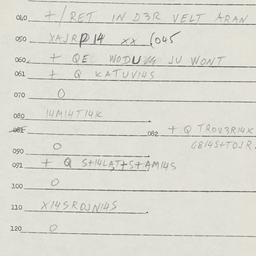 040 +/RET IN D3R VELT ARAN
050 XAJRP14 XX (045
060 + QE WODUNG JU WONT
061 + Q KATUV14S
070 O
080 14M14T14K
081 082 + Q TROV3R14K
G814S+TOJR
090 O
091 + Q S+14LAT+S+AM14S
100 O
110 X14SROJN14S
120 O